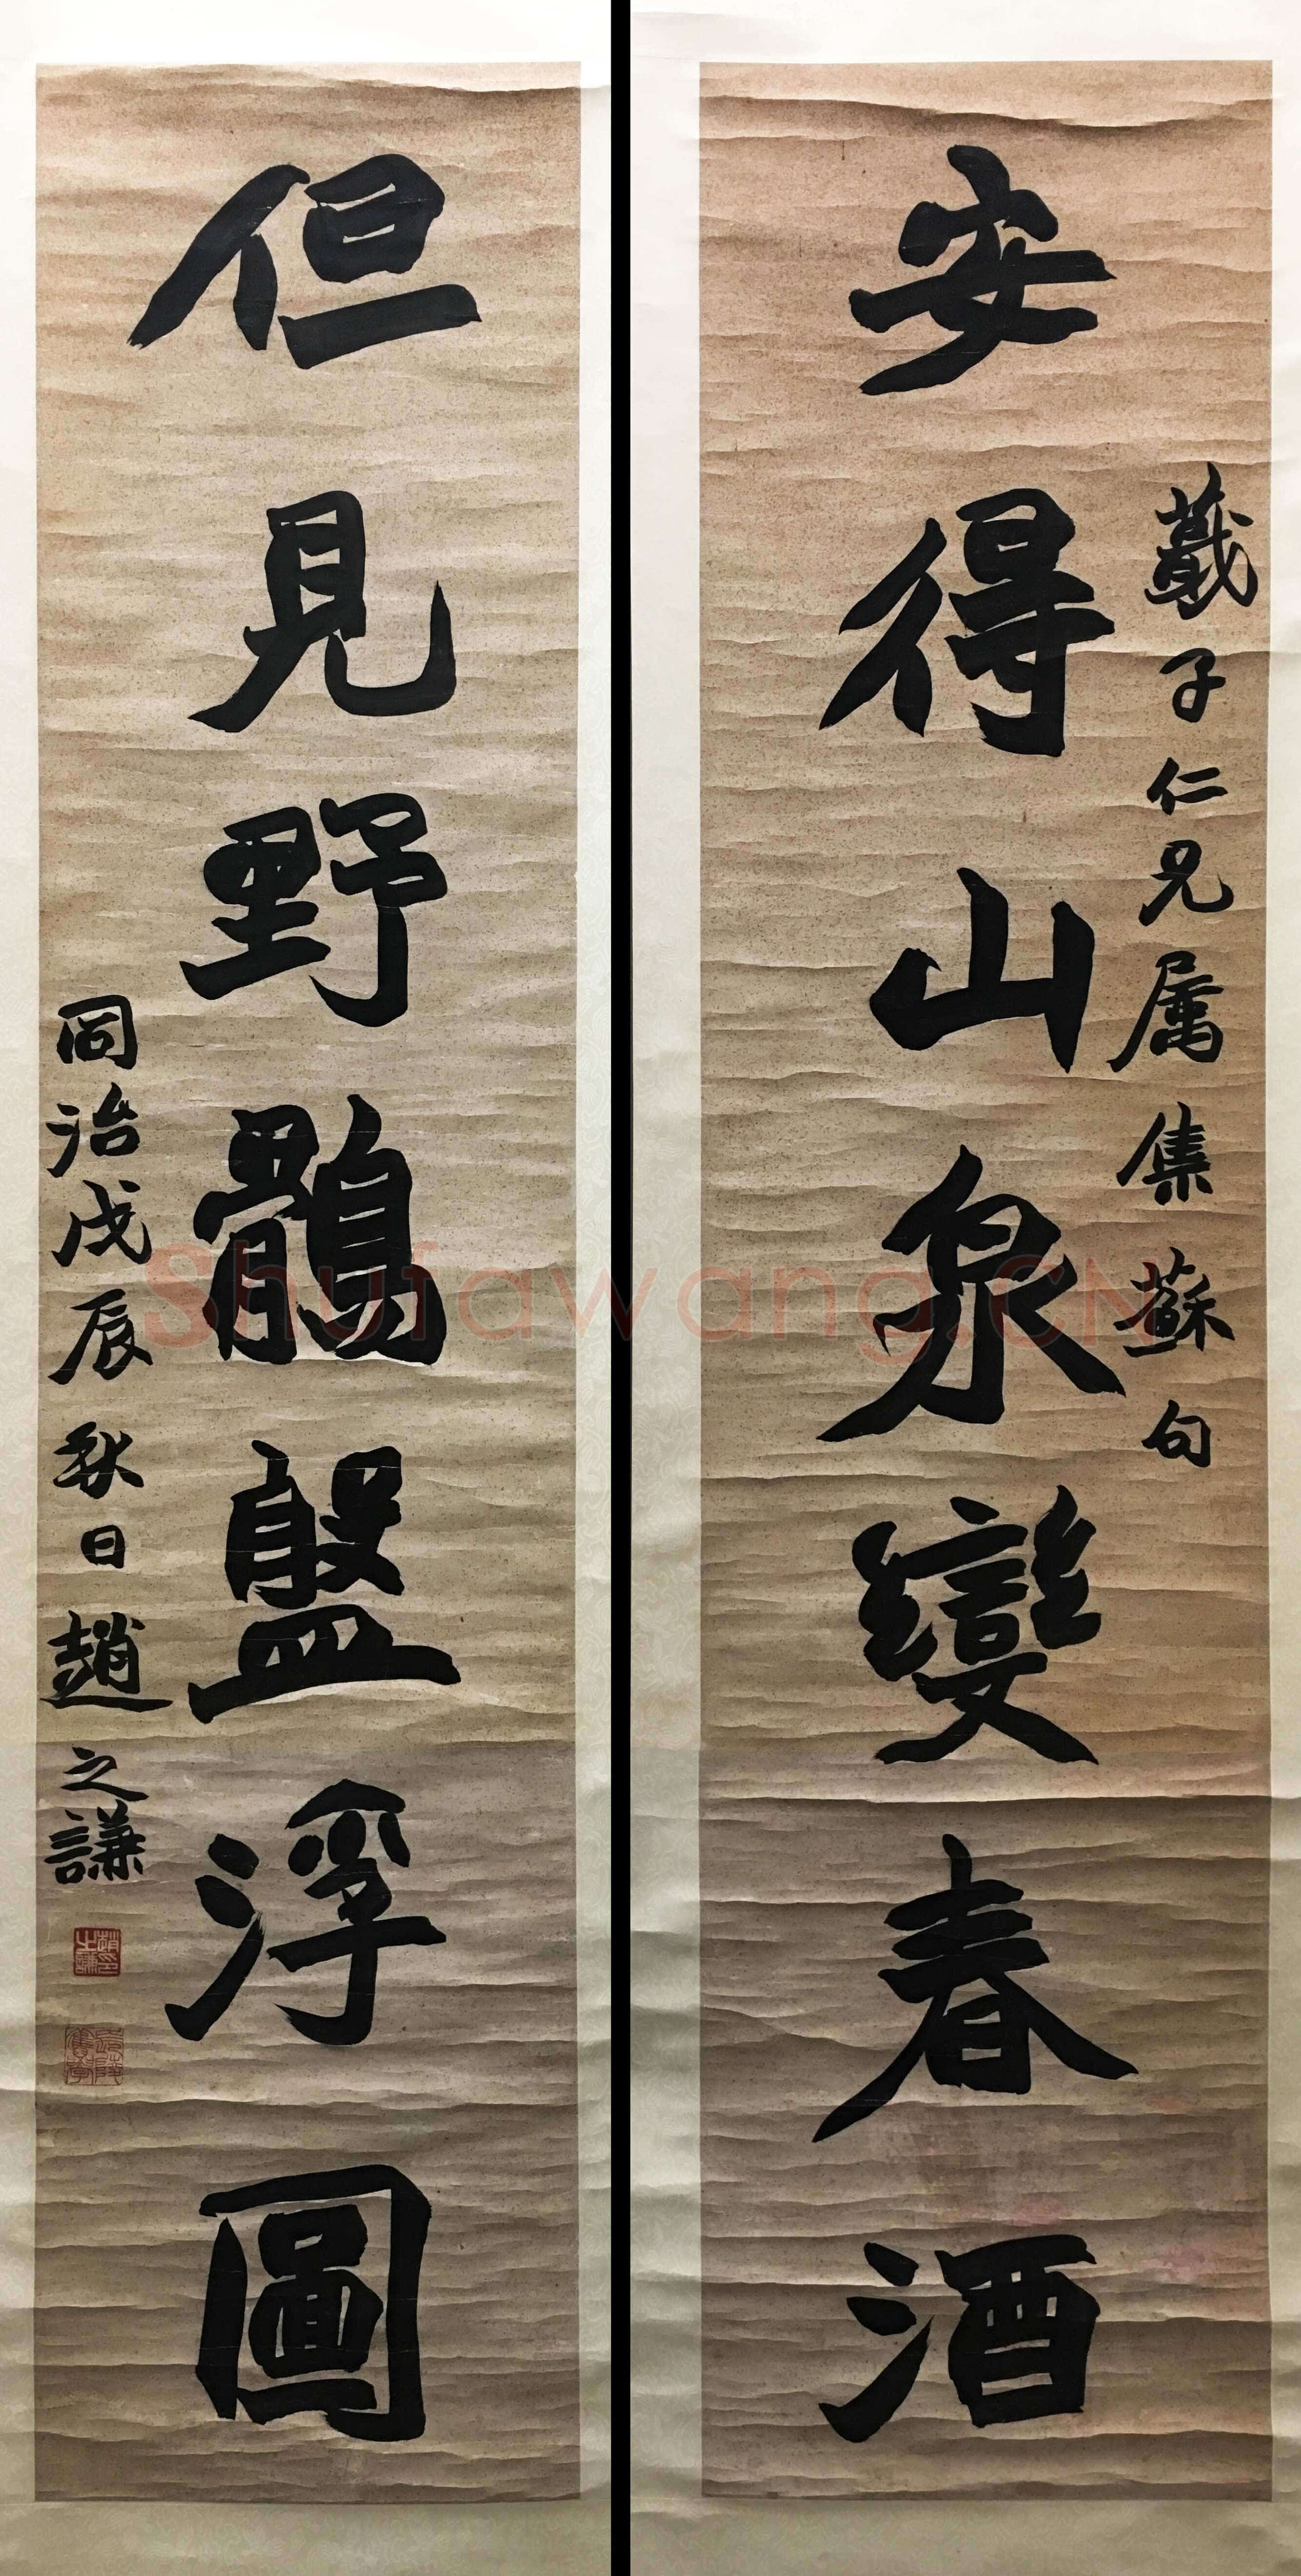 安得山泉變春酒
蕺子仁兄属集蘇句
但見野鶻盤浮圖
同治戊辰秋日趙之謙
趙印之謙
Shufawang.CN